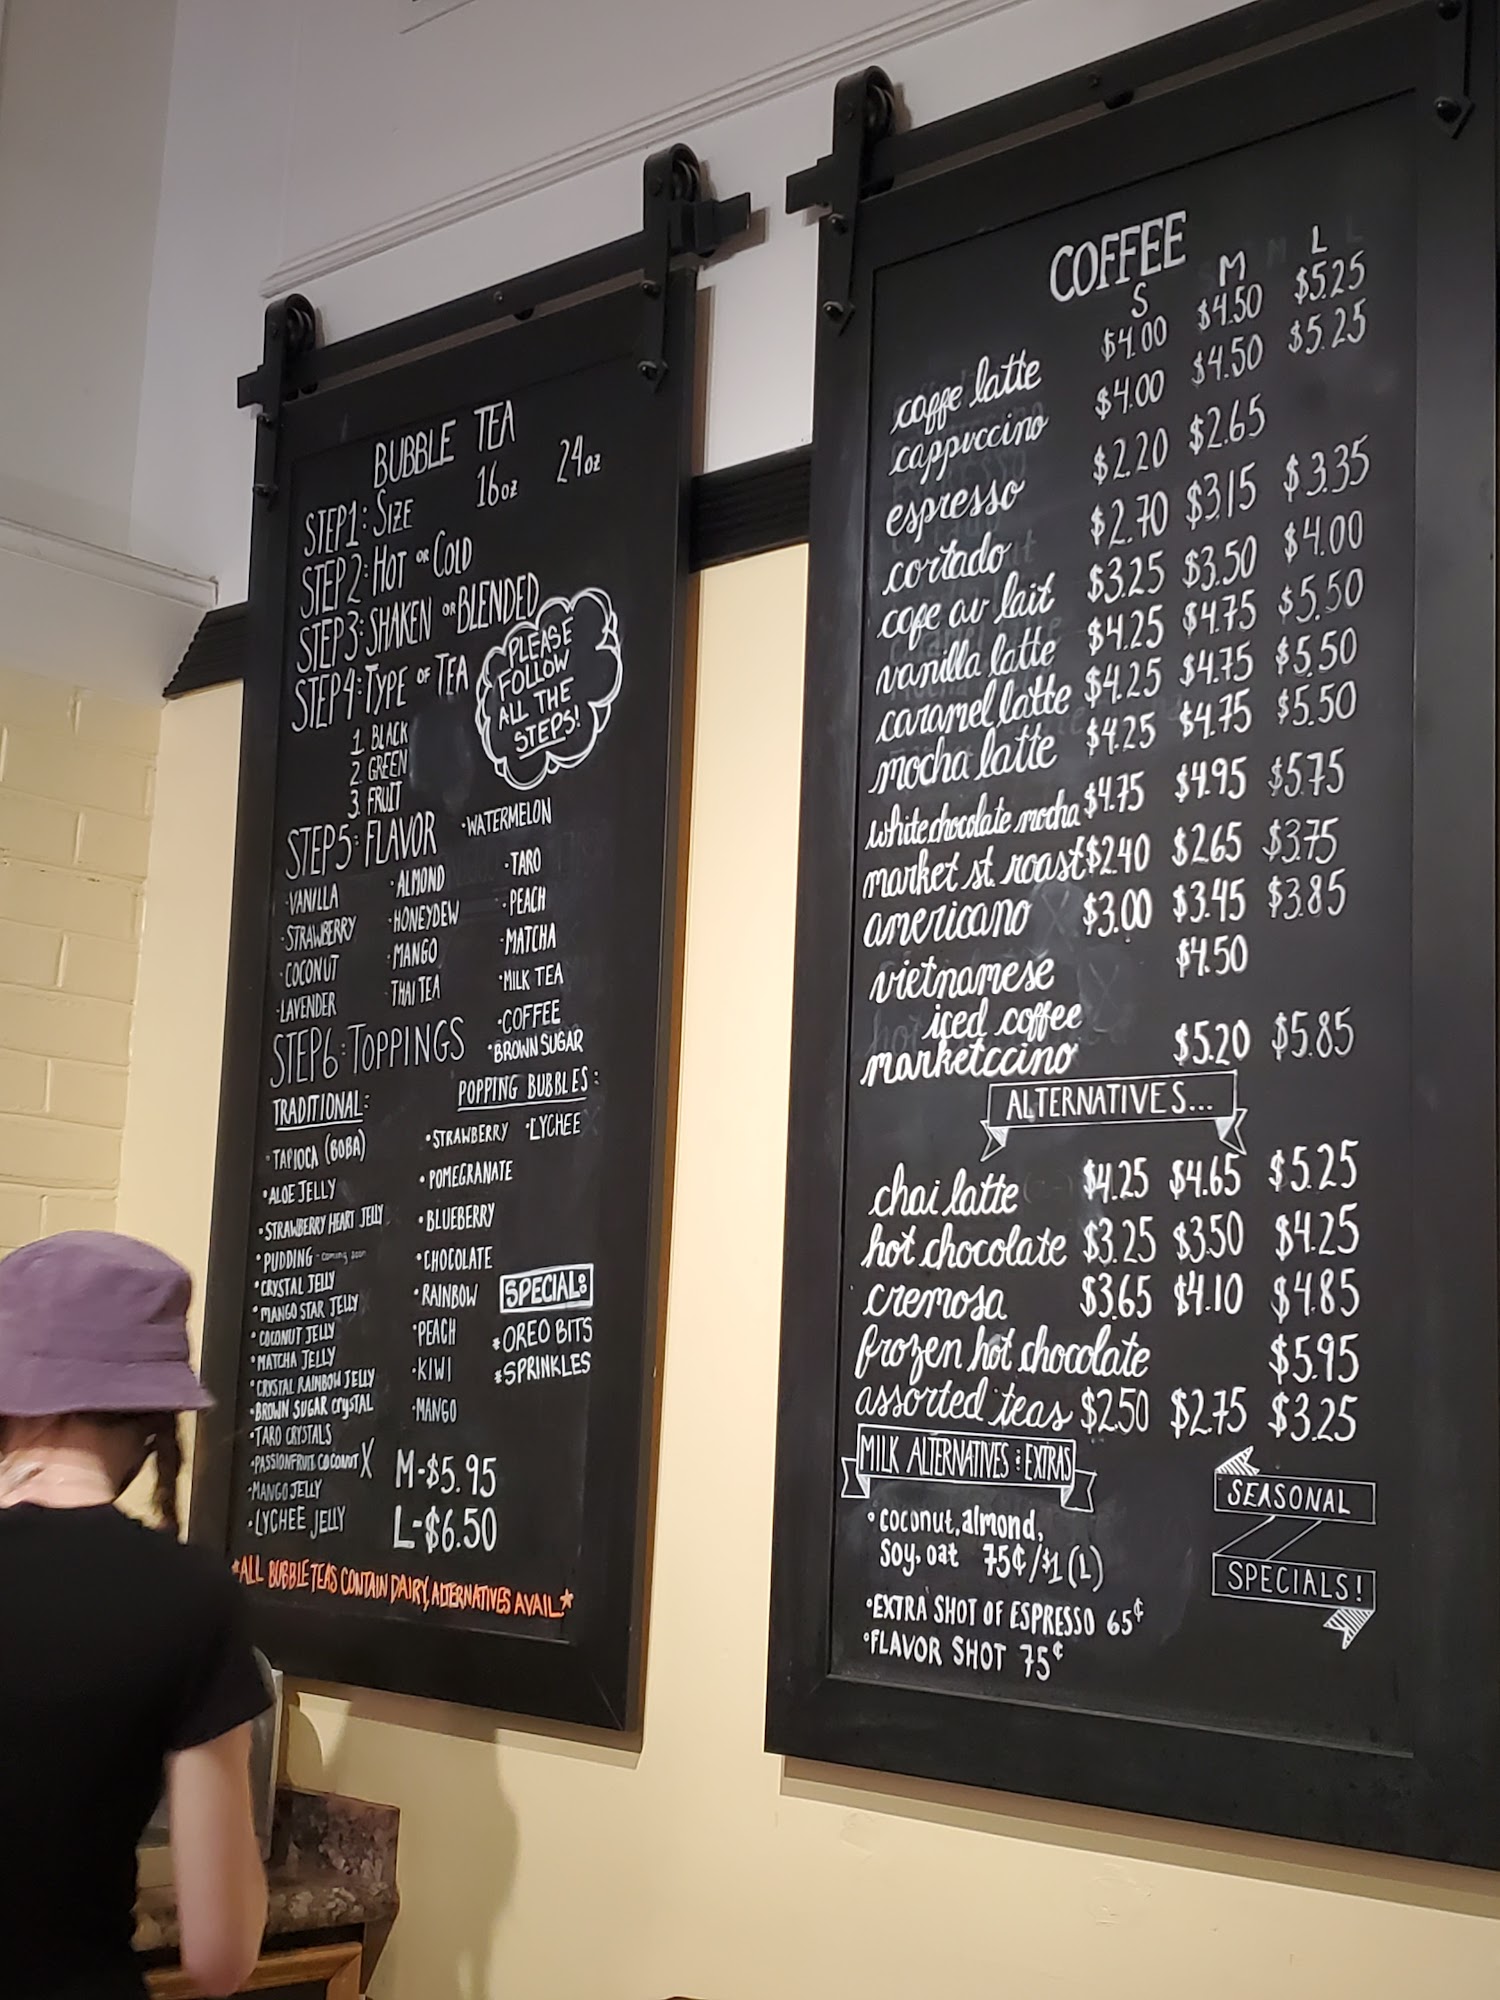 BUBBLE TEA
STEP 1: SIZE 16oz 24oz
STEP 2: HOT OR COLD
STEP 3: SHAKEN OR BLENDED
STEP 4: TYPE OF TEA
1. BLACK
2. GREEN
3. FRUIT
PLEASE
FOLLOW
ALL THE
STEPS!
STEP 5: FLAVOR
·VANILLA
·STRAWBERRY
·COCONUT
·LAVENDER
·ALMOND
·HONEYDEW
·MANGO
THAI TEA
·WATERMELON
·TARO
·PEACH
·MATCHA
·MILK TEA
·COFFEE
·BROWN SUGAR
STEP 6: TOPPINGS
TRADITIONAL:
·TAPIOCA (BOBA)
·ALOE JELLY
·STRAWBERRY HEART JELLY
·PUDDING - coming soon
·CRYSTAL JELLY
·MANGO STAR JELLY
·COCONUT JELLY
·MATCHA JELLY
·CRYSTAL RAINBOW JELLY
·BROWN SUGAR CRYSTAL
·TARO CRYSTALS
·PASSIONFRUIT COCONUT X
·MANGO JELLY
·LYCHEE JELLY
POPPING BUBBLES:
·STRAWBERRY ·LYCHEE
·POMEGRANATE
·BLUEBERRY
·CHOCOLATE
·RAINBOW
·PEACH
·KIWI
·MANGO
SPECIAL:
*OREO BITS
*SPRINKLES
M-$5.95
L-$6.50
*ALL BUBBLE TEAS CONTAIN DAIRY, ALTERNATIVES AVAIL.*
COFFEE
S M L
caffe latte $4.00 $4.50 $5.25
cappuccino $4.00 $4.50 $5.25
espresso $2.20 $2.65
cortado $2.70 $3.15 $3.35
cafe au lait $3.25 $3.50 $4.00
vanilla latte $4.25 $4.75 $5.50
caramel latte $4.25 $4.75 $5.50
mocha latte $4.25 $4.75 $5.50
white chocolate mocha $4.75 $4.95 $5.75
market st. roast $2.40 $2.65 $3.75
americano $3.00 $3.45 $3.85
vietnamese $4.50
iced coffee
marketccino $5.20 $5.85
ALTERNATIVES...
chai latte $4.25 $4.65 $5.25
hot chocolate $3.25 $3.50 $4.25
cremosa $3.65 $4.10 $4.85
frozen hot chocolate $5.95
assorted teas $2.50 $2.75 $3.25
MILK ALTERNATIVES & EXTRAS
·coconut, almond,
soy, oat 75¢/$1 (L)
·EXTRA SHOT OF ESPRESSO 65¢
·FLAVOR SHOT 75¢
SEASONAL
SPECIALS!